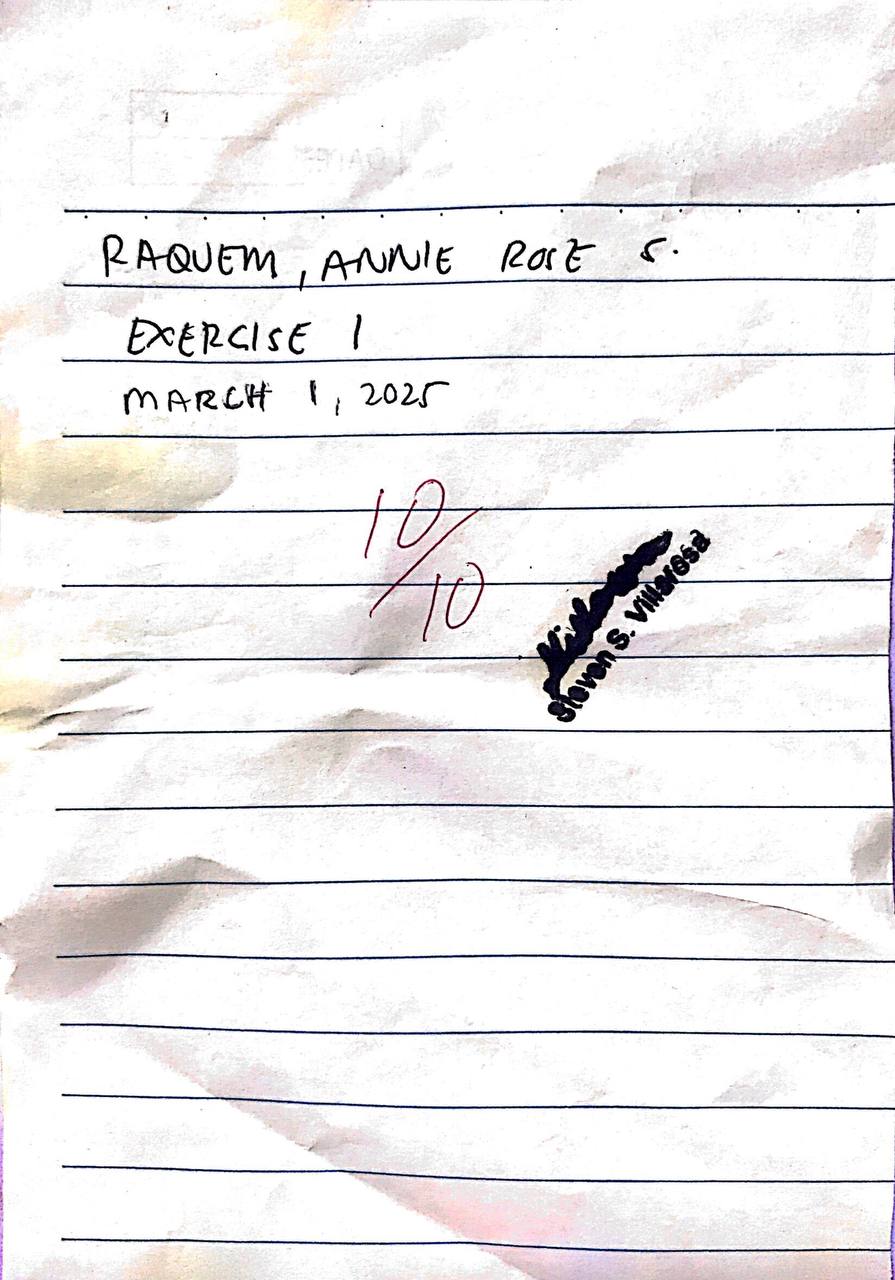 RAQUEM, ANNIE ROSE S.
EXERCISE 1
MARCH 1, 2025
10/10
Steven S. Villarosa